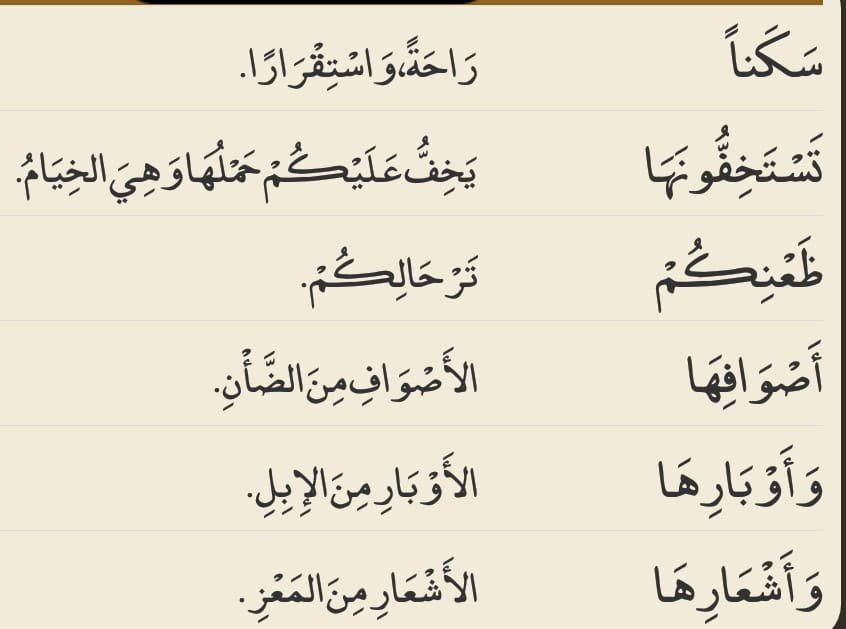 سَكَناً رَاحَةً، وَاسْتِقْرَارًا.
تَسْتَخِفُّونَهَا يَخِفُّ عَلَيْكُمْ حَمْلُهَا وَهِيَ الخِيَامُ.
ظَعْنِكُمْ تَرْحَالِكُمْ.
أَصْوَافِهَا الأَصْوَافِ مِنَ الضَّأْنِ.
وَأَوْبَارِهَا الأَوْبَارِ مِنَ الإِبِلِ.
وَأَشْعَارِهَا الأَشْعَارِ مِنَ المَعْزِ.